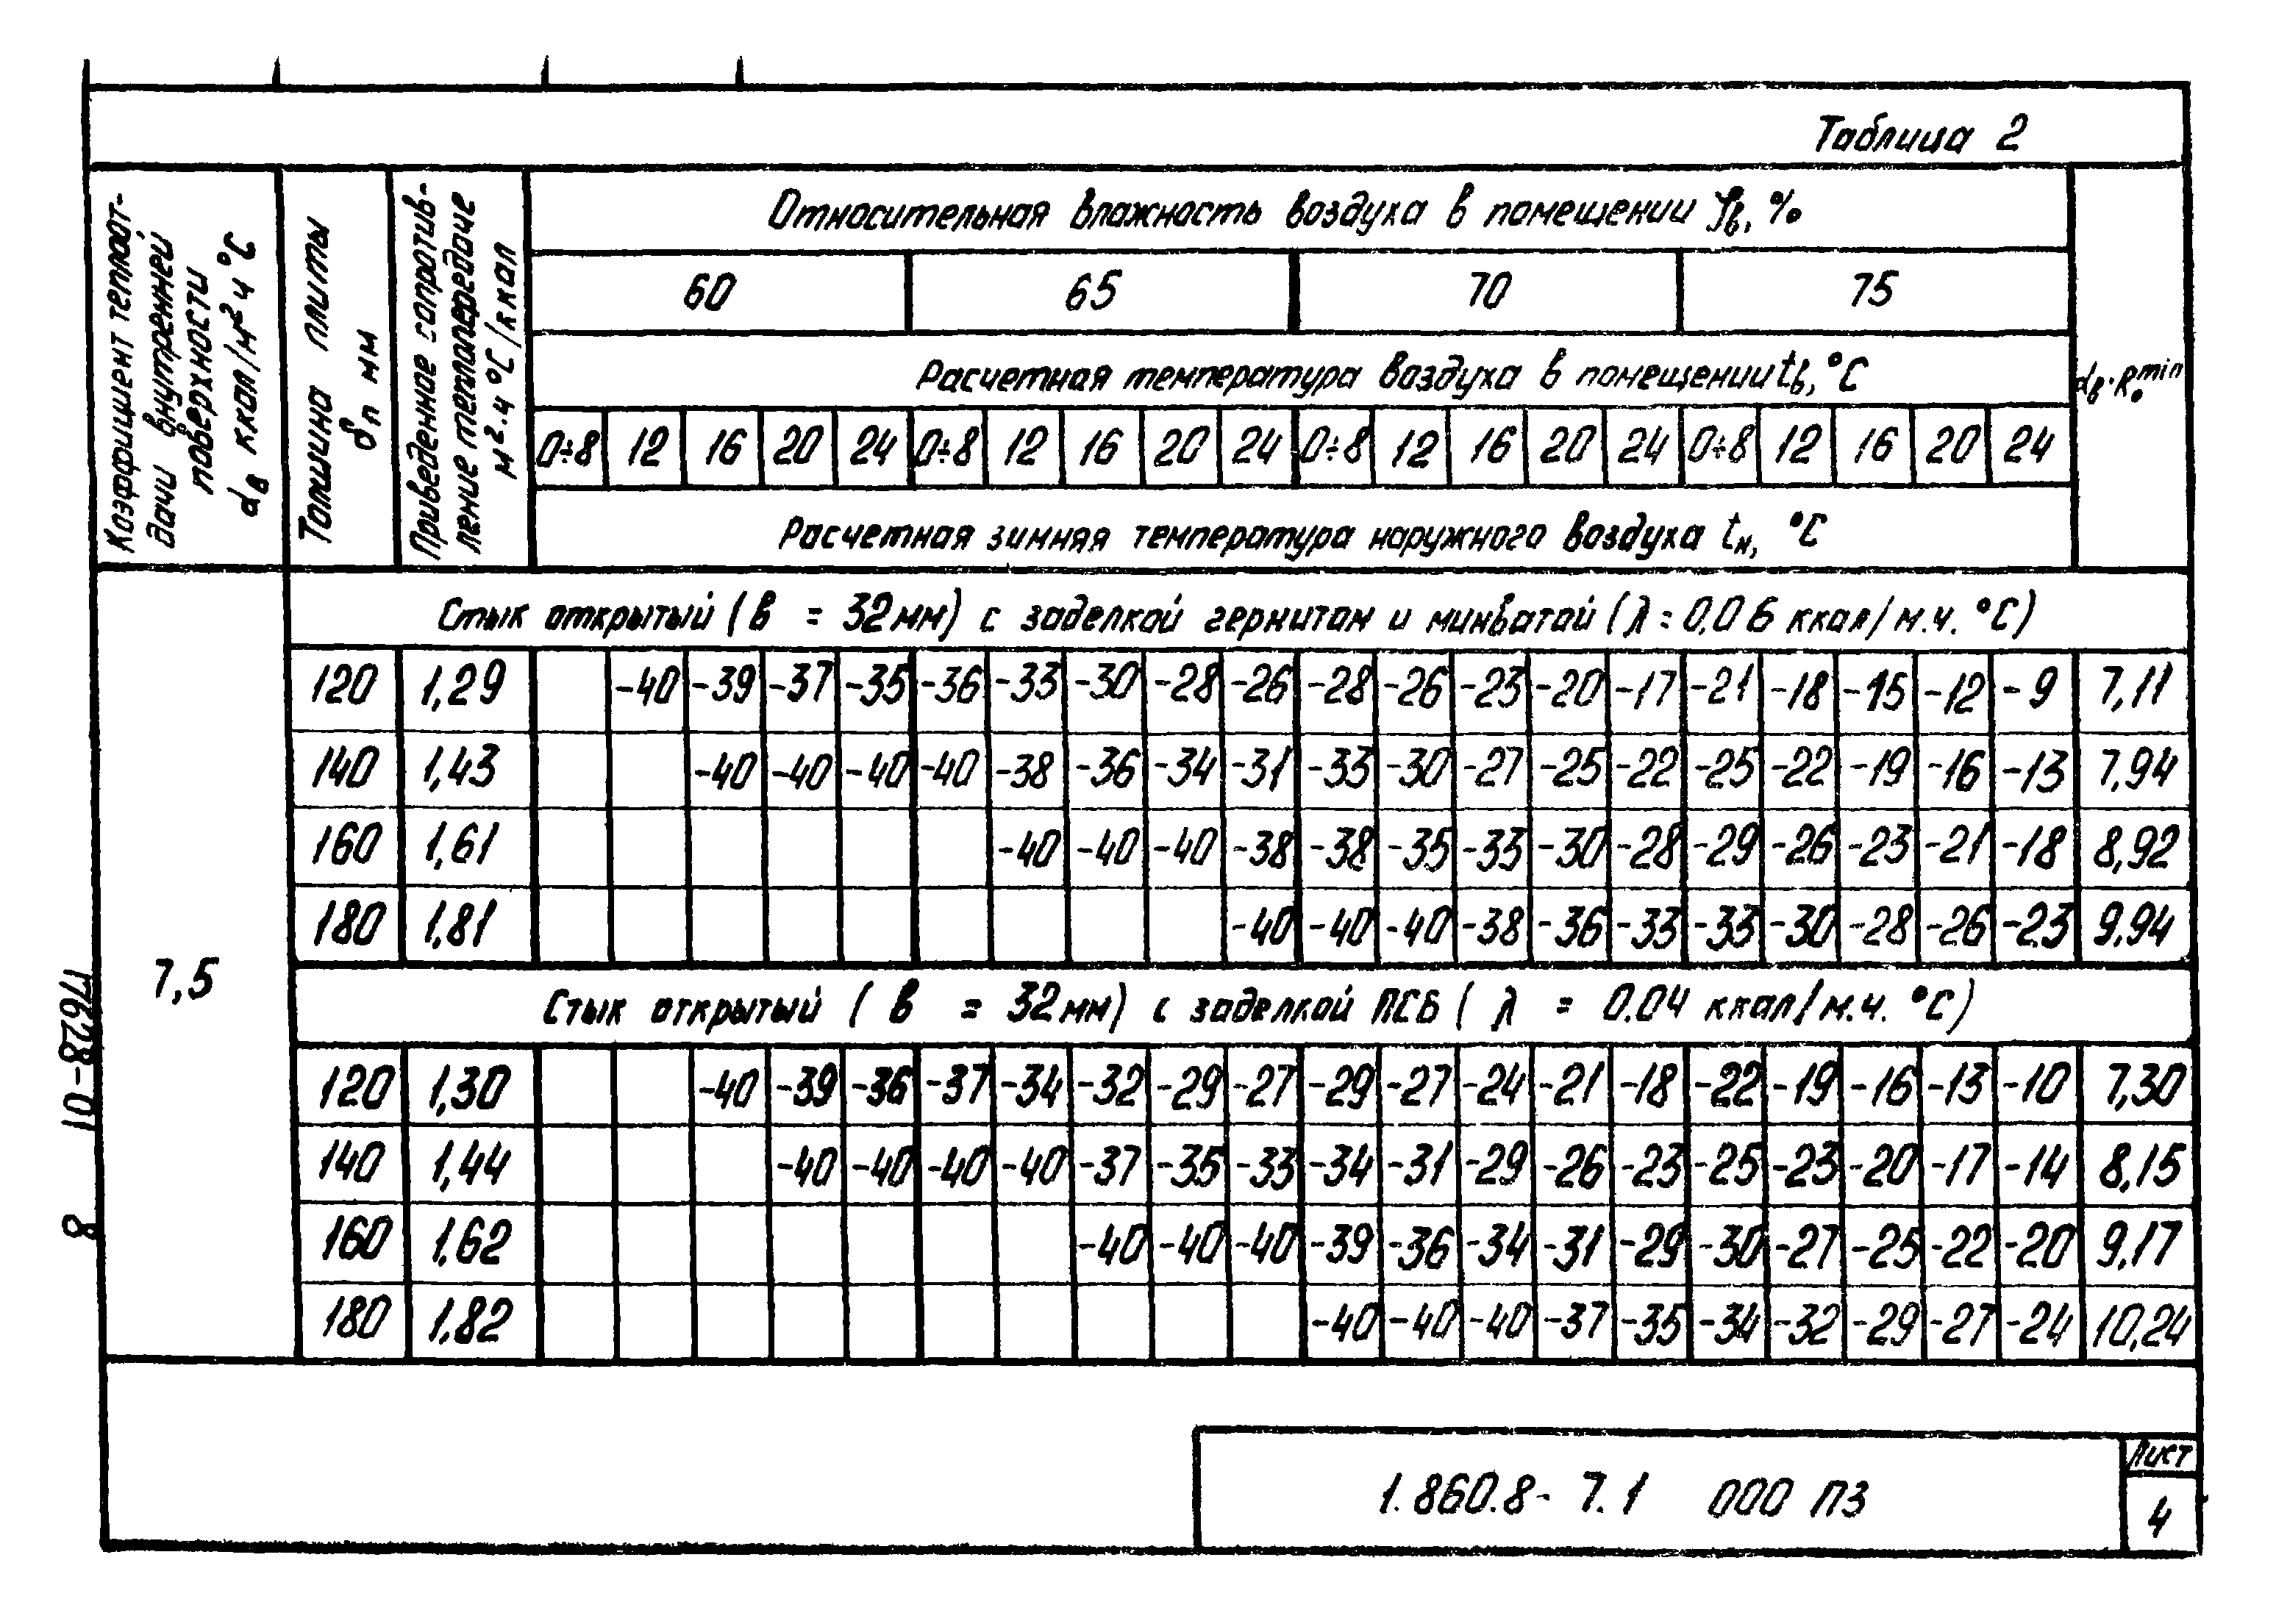 Таблица 2
Коэффициент теплоот-
дачи внутренней
поверхности
αв ккал/м² ч °С
Толщина плиты
δп мм
Приведенное сопротив-
ление теплопередаче
м².ч °С/ккал
Относительная влажность воздуха в помещении φв, %
60 65 70 75
Расчетная температура воздуха в помещении tв, °С
αв·Rₒmin
0÷8 12 16 20 24 0÷8 12 16 20 24 0÷8 12 16 20 24 0÷8 12 16 20 24
Расчетная зимняя температура наружного воздуха tн, °С
Стык открытый (в = 32мм) с заделкой гернитом и минватой (λ = 0.06 ккал/м.ч. °С)
120 1,29 -40 -39 -37 -35 -36 -33 -30 -28 -26 -28 -26 -23 -20 -17 -21 -18 -15 -12 -9 7,11
140 1,43 -40 -40 -40 -40 -38 -36 -34 -31 -33 -30 -27 -25 -22 -25 -22 -19 -16 -13 7,94
160 1,61 -40 -40 -40 -38 -38 -35 -33 -30 -28 -29 -26 -23 -21 -18 8,92
180 1,81 -40 -40 -40 -38 -36 -33 -33 -30 -28 -26 -23 9,94
7,5
Стык открытый ( в = 32мм) с заделкой ПСБ ( λ = 0.04 ккал/м.ч. °С)
120 1,30 -40 -39 -36 -37 -34 -32 -29 -27 -29 -27 -24 -21 -18 -22 -19 -16 -13 -10 7,30
140 1,44 -40 -40 -40 -40 -37 -35 -33 -34 -31 -29 -26 -23 -25 -23 -20 -17 -14 8,15
160 1,62 -40 -40 -40 -39 -36 -34 -31 -29 -30 -27 -25 -22 -20 9,17
180 1,82 -40 -40 -40 -37 -35 -34 -32 -29 -27 -24 10,24
17628-01 8
1.860.8-7.1 000 ПЗ
Лист
4